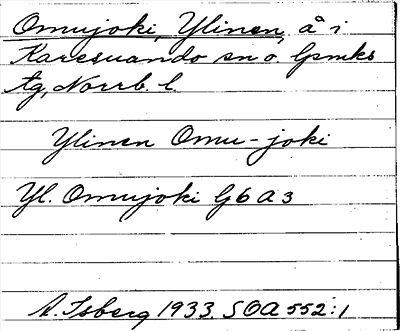 Omujoki, Ylinen, å i
Karesuando sn o Lpmks
tg, Norrb. l.
Ylinen Omu-joki
Yl. Omujoki G6A3
A. Isberg 1933. SOA 552:1